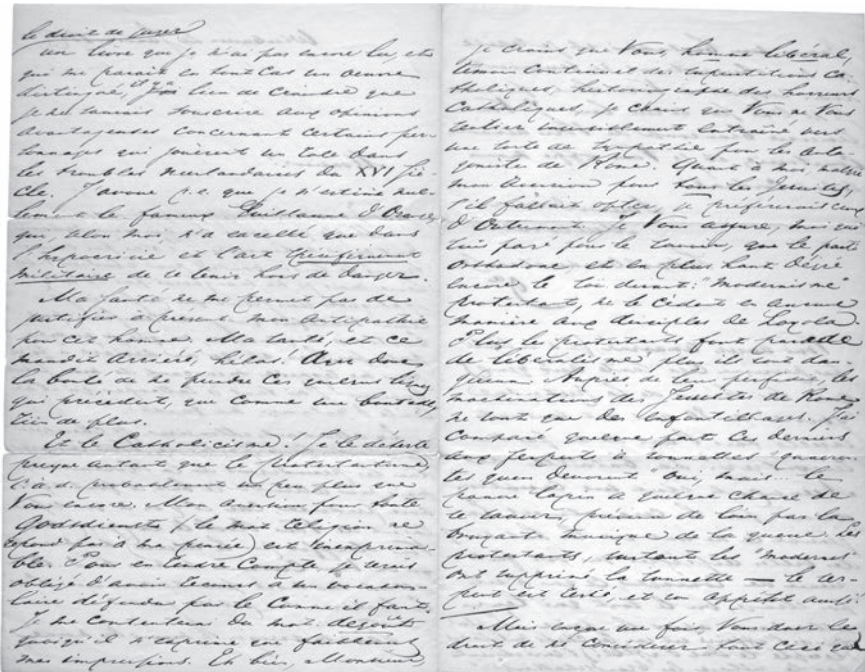 le droit de juger
un livre que je n'ai pas encore lu, et
qui me parait en tout cas un oeuvre
distingué, j'ai lieu de craindre que
je ne saurais souscrire aux opinions
avantageuses concernant certains per-
sonnages qui jouèrent un role dans
les troubles néerlandaises du XVI siè-
cle. J'avoue p.e. que je n'estime nul-
lement le fameux Guillaume d'Orange,
qui selon moi n'a excellé que dans
l'hypocrisie et l'art
militaire de se tenir hors de danger.
Ma santé ne me permet pas de
justifier à présent mon antipathie
pour cet homme. Ma santé, et ce
maudit arriéré, hélas! donc
la bonté de ne prendre ces quelques lignes
qui précèdent, que comme une boutade,
rien de plus.
Et le Catholicisme! Je le déteste
presque autant que le protestantisme,
c.à.d. probablement un peu plus que
Vous encore. Mon aversion pour toute
Godsdienst (le mot religion ne
répond pas à ma pensée) est inexprima-
ble. Pour en rendre compte je serais
obligé d'avoir recours à un vocabu-
laire défendu par le Comme il faut.
Je me contenterai du mot: degout
quoiqu'il n'exprime que faiblement
mes impressions. Eh bien, Monsieur,
je crains que Vous, homme libéral,
temoin continuel des turpitudes ca-
tholiques, historiographe des horreurs
catholiques, je crains que Vous ne Vous
sentiez insensiblement entrainé vers
une sorte de sympathie pour les anta-
gonistes de Rome. Quant à moi, malgré
mon aversion pour tous les Jesuites,
s'il fallait opter, je préférerais ceux
d'Outremont. Je Vous assure, moi qui
suis payé pour le savoir, que le parti
orthodoxe, et en plus haut dégré
encore le soi disant: "modernisme"
protestant, ne le cèdent en aucune
manière aux disciples de Loyola.
Plus le protestants font parade
de libéralisme plus il sont dan-
gereux. Auprès de leur perfidie, les
machinations des Jesuites de Rome
ne sont que des enfantillages. J'ai
comparé quelque part ces derniers
aux serpents à sonnettes
oui, mais... le
pauvre lapin a quelque chance de
se sauver, prévenu de loin par la
bruyante musique de la queue. Les
protestants, surtout les "modernes"
ont supprimé la sonnette — le ser-
pent est resté, et son appétit aussi!
Mais encore une fois, Vous avez le
droit de ne considérer tout ceci que